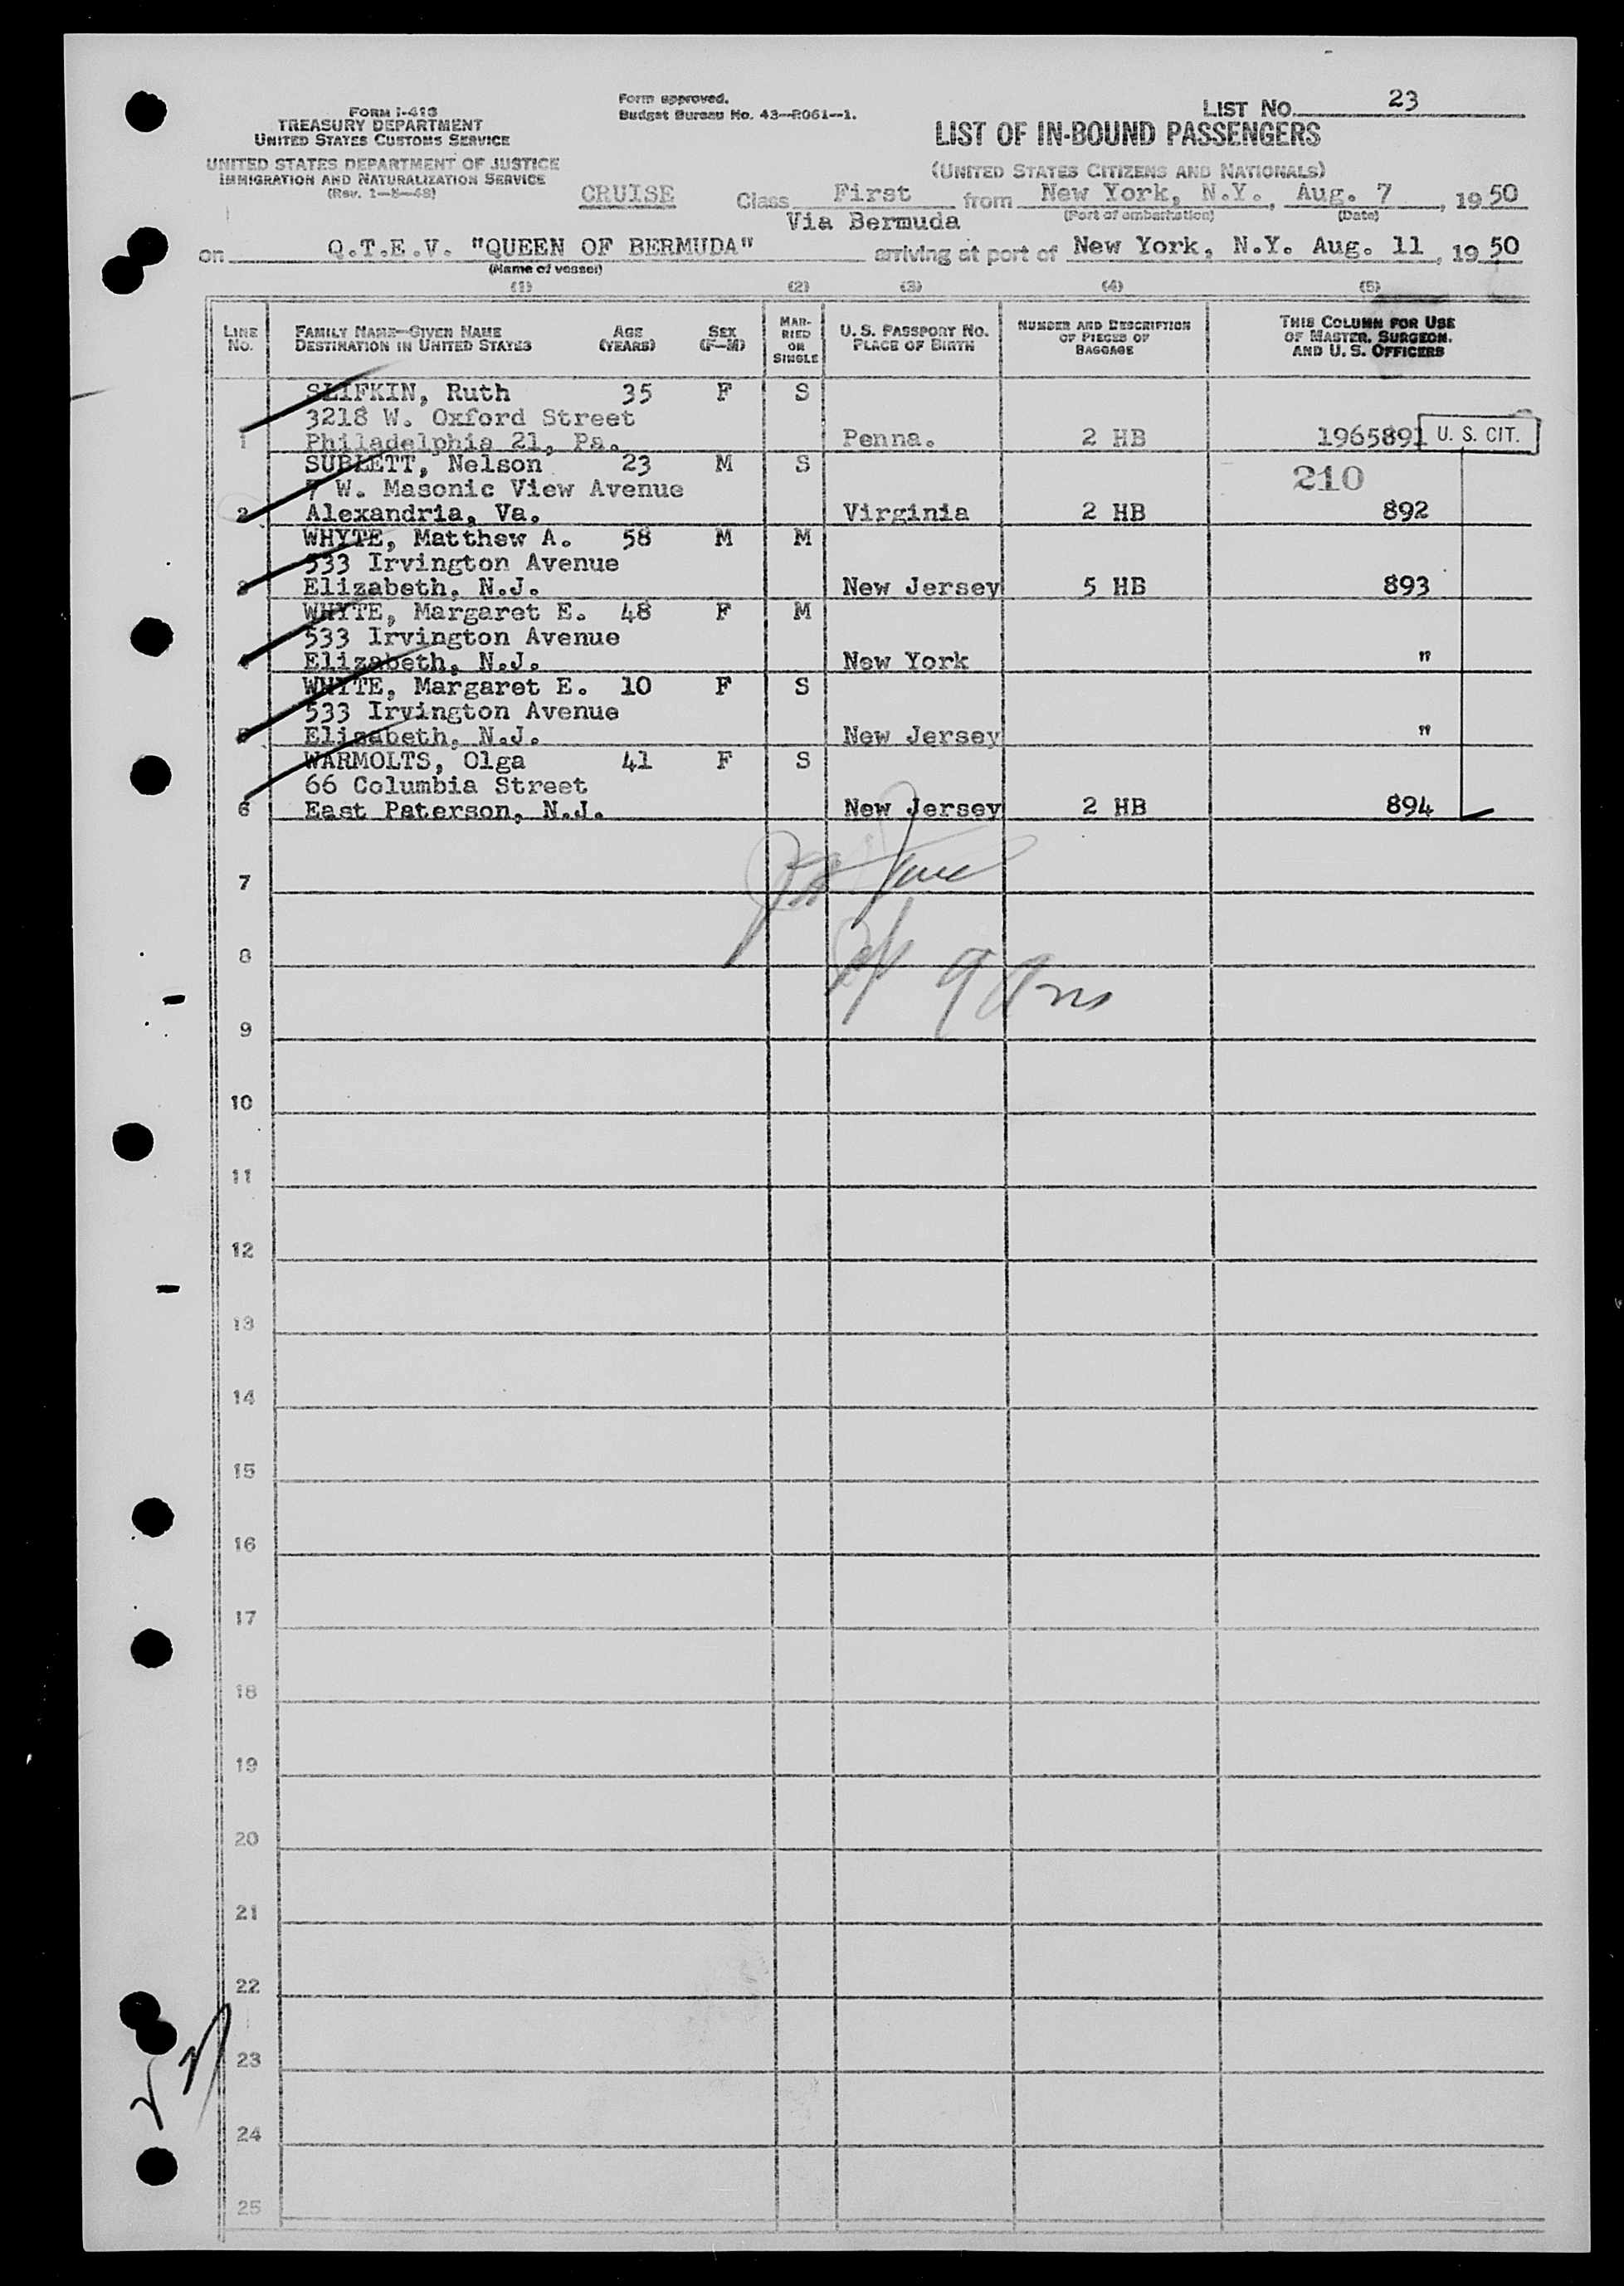 FORM I-418
TREASURY DEPARTMENT
UNITED STATES CUSTOMS SERVICE
UNITED STATES DEPARTMENT OF JUSTICE
IMMIGRATION AND NATURALIZATION SERVICE
Form approved.
Budget Bureau No. 43-R061-1.
LIST NO. 23
LIST OF IN-BOUND PASSENGERS
(UNITED STATES CITIZENS AND NATIONALS)
CRUISE Class First from New York, N.Y., Aug. 7, 1950
(Port of embarkation) (Date)
Via Bermuda
on Q.T.E.V. "QUEEN OF BERMUDA" arriving at port of New York, N.Y. Aug. 11, 1950
(Name of vessel)
(1) (2) (3) (4) (5)
LINE NO. FAMILY NAME—GIVEN NAME DESTINATION IN UNITED STATES AGE (YEARS) SEX (F—M) MARRIED OR SINGLE U. S. PASSPORT NO. PLACE OF BIRTH NUMBER AND DESCRIPTION OF PIECES OF BAGGAGE THIS COLUMN FOR USE OF MASTER, SURGEON, AND U. S. OFFICERS
SLIFKIN, Ruth 35 F S
3218 W. Oxford Street
1 Philadelphia 21, Pa. Penna. 2 HB 1965891 U. S. CIT.
SUBLETT, Nelson 23 M S 210
7 W. Masonic View Avenue
2 Alexandria, Va. Virginia 2 HB 892
WHYTE, Matthew A. 58 M M
533 Irvington Avenue
3 Elizabeth, N.J. New Jersey 5 HB 893
WHYTE, Margaret E. 48 F M
533 Irvington Avenue
4 Elizabeth, N.J. New York "
WHYTE, Margaret E. 10 F S
533 Irvington Avenue
5 Elizabeth, N.J. New Jersey "
WARMOLTS, Olga 41 F S
66 Columbia Street
6 East Paterson, N.J. New Jersey 2 HB 894
7
8
9
10
11
12
13
14
15
16
17
18
19
20
21
22
23
24
25